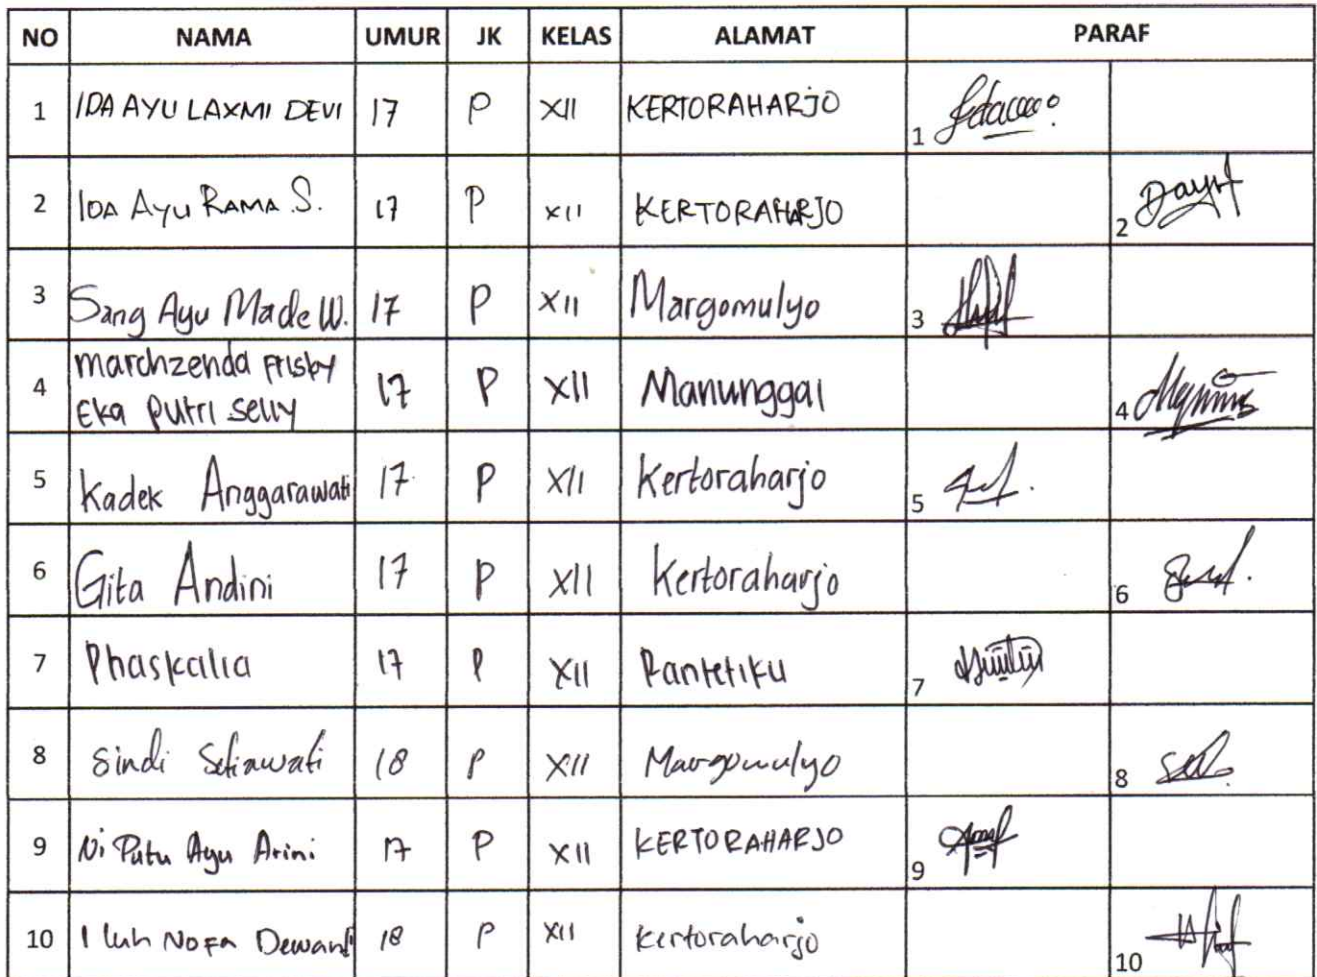 NO NAMA UMUR JK KELAS ALAMAT PARAF
1 IDA AYU LAXMI DEVI 17 P XII KERTORAHARJO 1
2 IDA AYU RAMA S. 17 P XII KERTORAHARJO 2
3 Sang Ayu Made W. 17 P XII Margomulyo 3
4 marchzenda Frisby 17 P XII Manunggal 4
Eka putri selly
5 Kadek Anggarawati 17 P XII Kertoraharjo 5
6 Gita Andini 17 P XII Kertoraharjo 6
7 Phaskalia 17 P XII Rantetiku 7
8 Sindi Setiawati 18 P XII Margomulyo 8
9 Ni Putu Ayu Arini 17 P XII KERTORAHARJO 9
10 I luh Nofa Dewanti 18 P XII Kertoraharjo 10